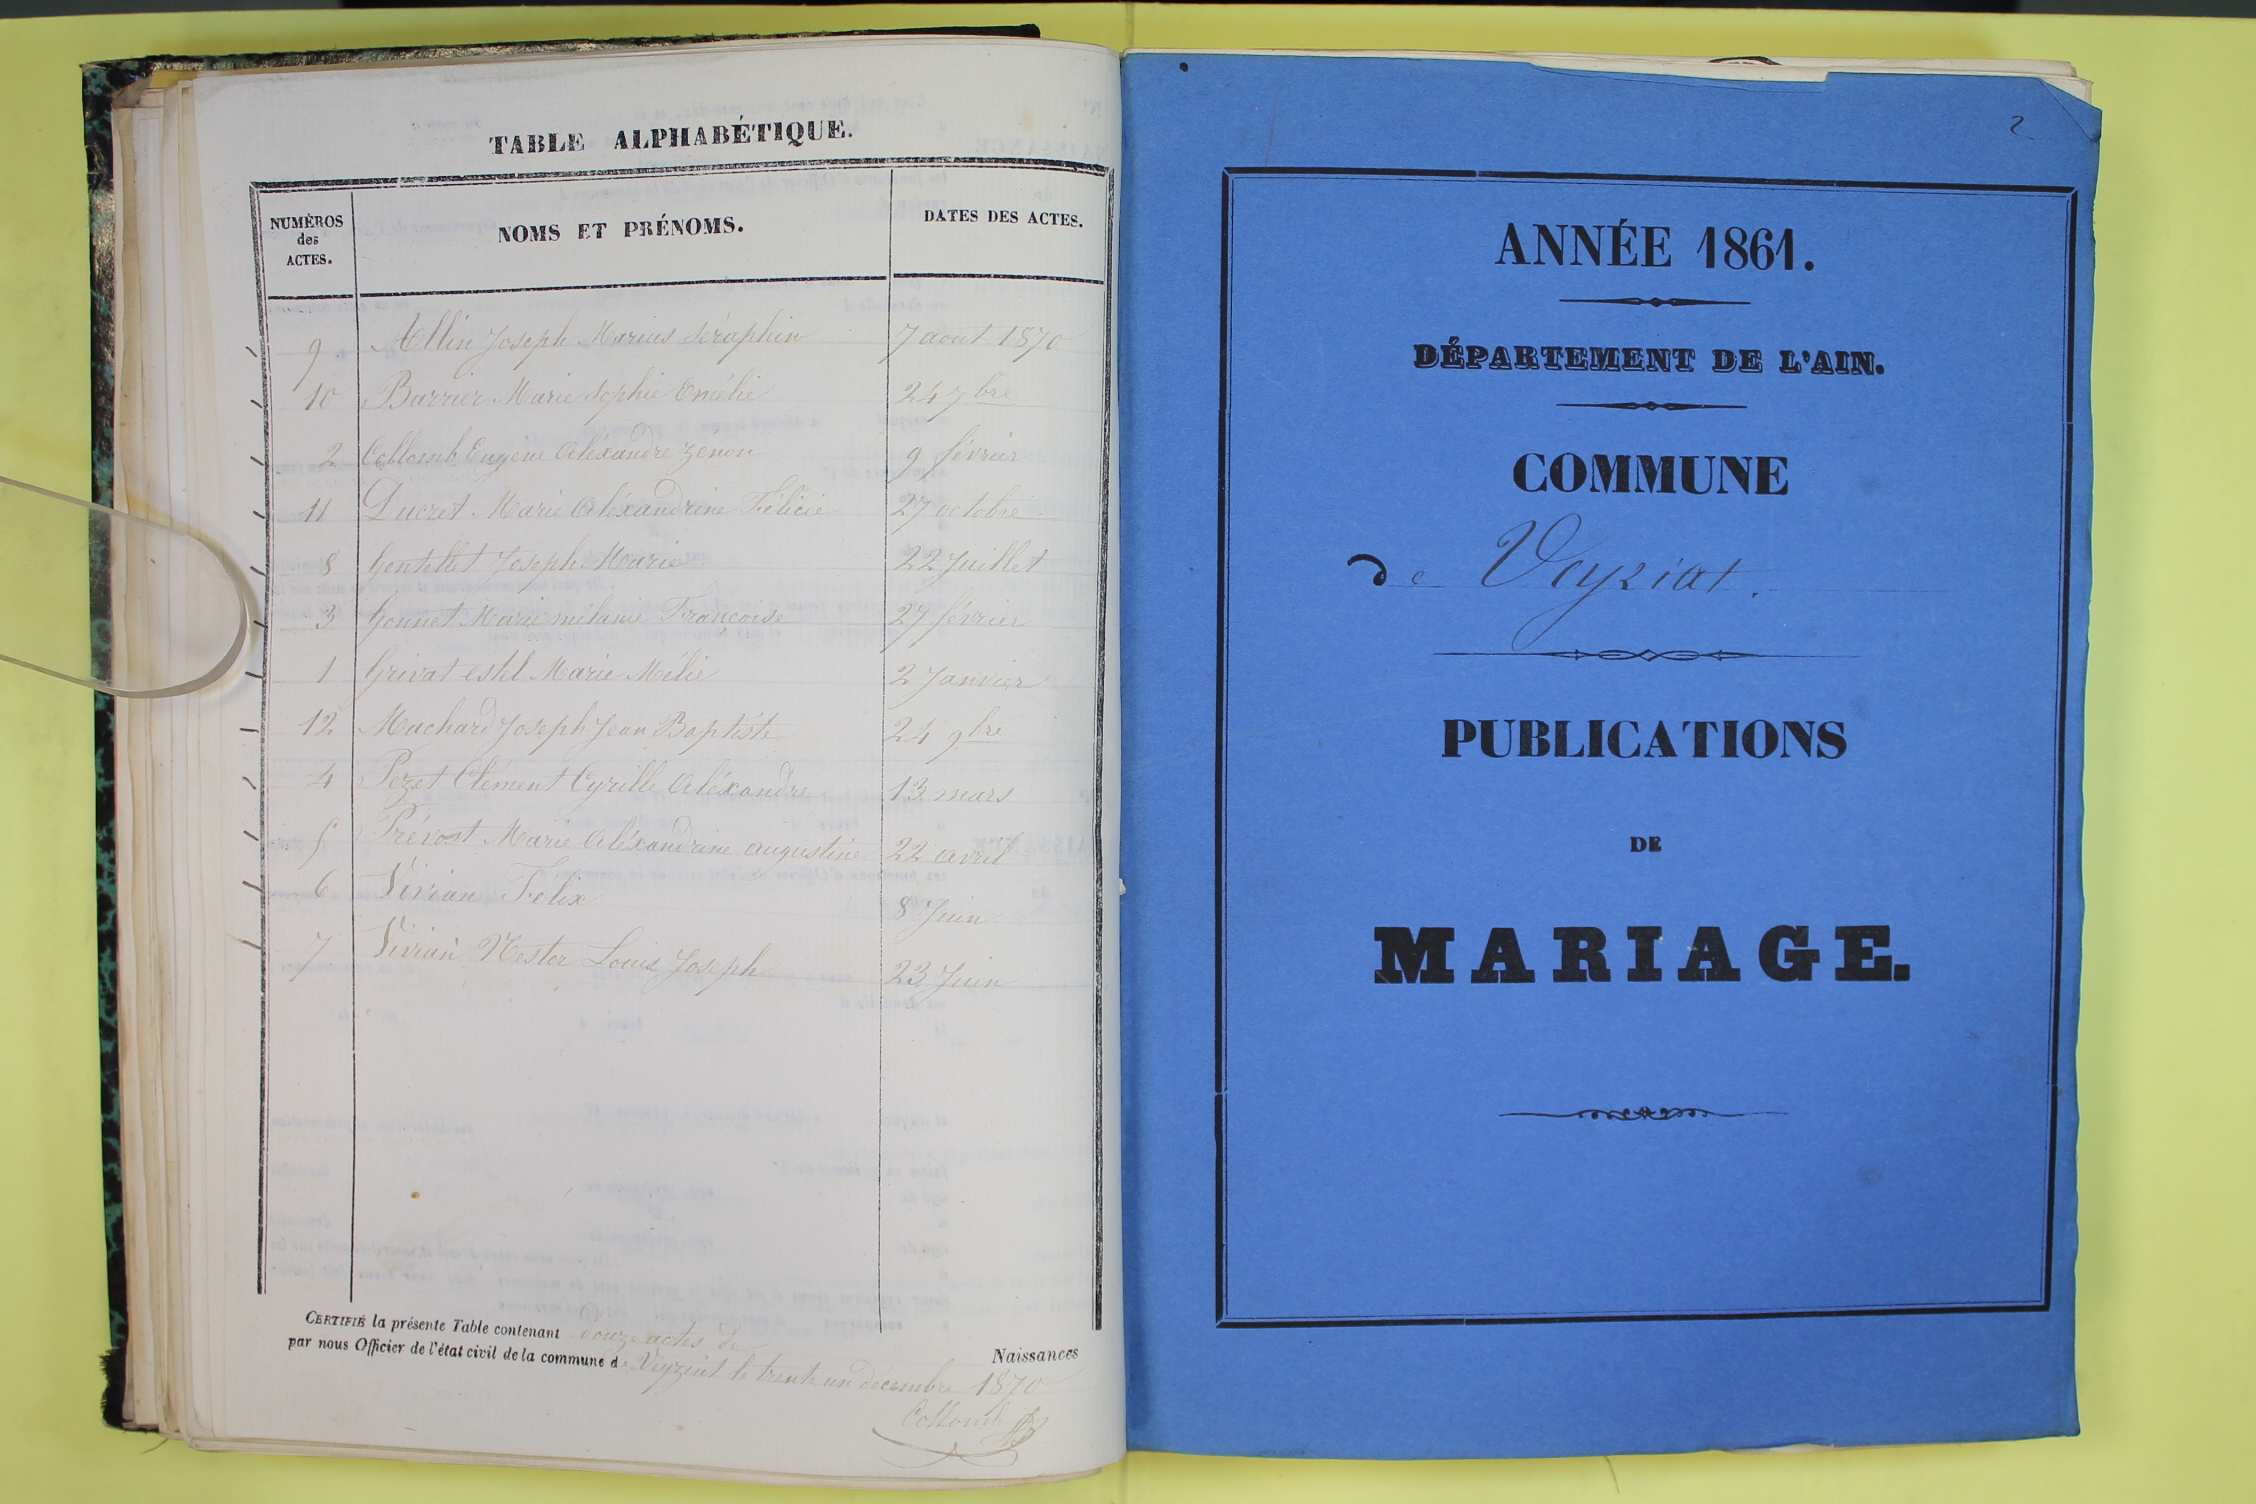 TABLE ALPHABÉTIQUE.
NUMÉROS
des
ACTES.
NOMS ET PRÉNOMS.
DATES DES ACTES.
9 Allin Joseph Marius Séraphin 7 aout 1870
10 Barrier Marie Sophie Emélie 24 7bre
2 Collomb Eugène Aléxandre Zénon 9 février
11 Ducret Marie Aléxandrine Félicie 27 octobre
8 Gentellet Joseph Marie 22 Juillet
3 Gonnet Marie mélanie Françoise 27 février
1 Grivat Marie Mélie 2 Janvier
12 Machard Joseph Jean Baptiste 24 9bre
4 Pezet Clément Cyrille Aléxandre 13 mars
5 Prévost Marie Aléxandrine augustine 22 avril
6 Vivian Felix 8 Juin
7 Vivian Nestor Louis Joseph 23 Juin
CERTIFIÉ la présente Table contenant douze actes de Naissances
par nous Officier de l'état civil de la commune de Veyziat le trente un decembre 1870
Collomb
2
ANNÉE 1861.
DÉPARTEMENT DE L'AIN.
COMMUNE
de Veyziat.
PUBLICATIONS
DE
MARIAGE.